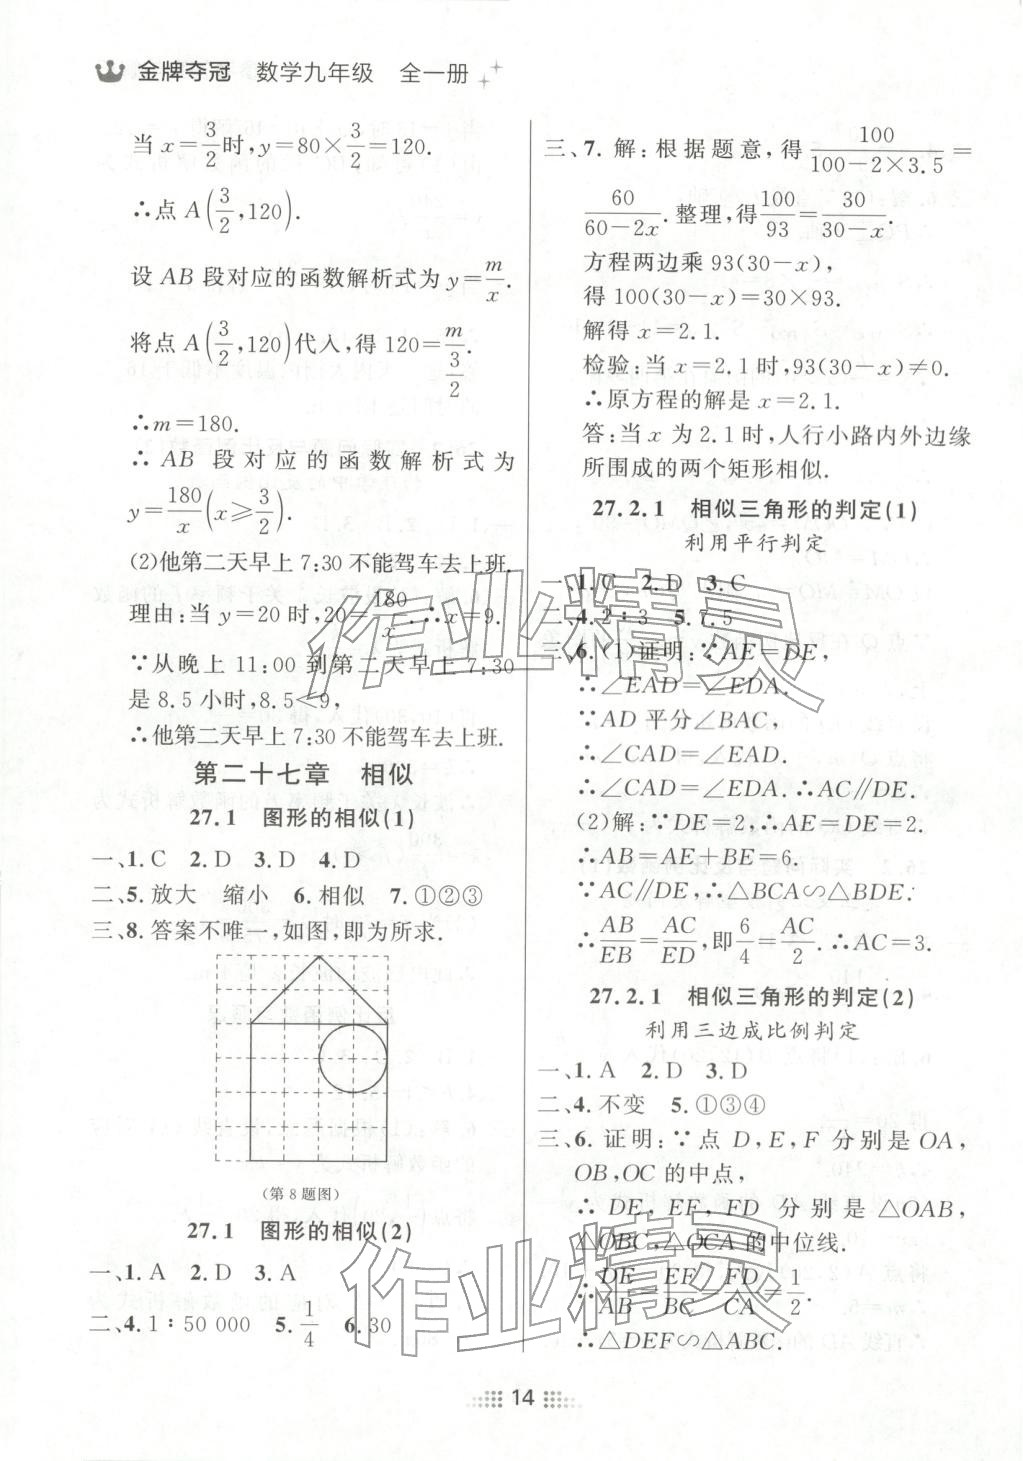 金牌夺冠 数学九年级 全一册
当x=3/2时,y=80×3/2=120.
∴点A(3/2,120).
设AB段对应的函数解析式为y=m/x.
将点A(3/2,120)代入,得120=m/(3/2).
∴m=180.
∴AB段对应的函数解析式为
y=180/x(x≥3/2).
(2)他第二天早上7:30不能驾车去上班.
理由:当y=20时,20=180/x,∴x=9.
∵从晚上11:00到第二天早上7:30
是8.5小时,8.5<9,
∴他第二天早上7:30不能驾车去上班.
第二十七章 相似
27.1 图形的相似(1)
一、1.C 2.D 3.D 4.D
二、5.放大 缩小 6.相似 7.①②③
三、8.答案不唯一,如图,即为所求.
(第8题图)
27.1 图形的相似(2)
一、1.A 2.D 3.A
二、4.1∶50 000 5.1/4 6.30
三、7.解:根据题意,得100/(100-2×3.5)=
60/(60-2x).整理,得100/93=30/(30-x).
方程两边乘93(30-x),
得100(30-x)=30×93.
解得x=2.1.
检验:当x=2.1时,93(30-x)≠0.
∴原方程的解是x=2.1.
答:当x为2.1时,人行小路内外边缘
所围成的两个矩形相似.
27.2.1 相似三角形的判定(1)
利用平行判定
一、1.C 2.D 3.C
二、4.2∶3 5.7.5
三、6.(1)证明:∵AE=DE,
∴∠EAD=∠EDA.
∵AD平分∠BAC,
∴∠CAD=∠EAD.
∴∠CAD=∠EDA.∴AC∥DE.
(2)解:∵DE=2,∴AE=DE=2.
∴AB=AE+BE=6.
∵AC∥DE,∴△BCA∽△BDE.
∴AB/EB=AC/ED,即6/4=AC/2.∴AC=3.
27.2.1 相似三角形的判定(2)
利用三边成比例判定
一、1.A 2.D 3.D
二、4.不变 5.①③④
三、6.证明:∵点D,E,F分别是OA,
OB,OC的中点,
∴DE,EF,FD分别是△OAB,
△OBC,△OCA的中位线.
∴DE/AB=EF/BC=FD/CA=1/2.
∴△DEF∽△ABC.
14
作业精灵
作业精灵